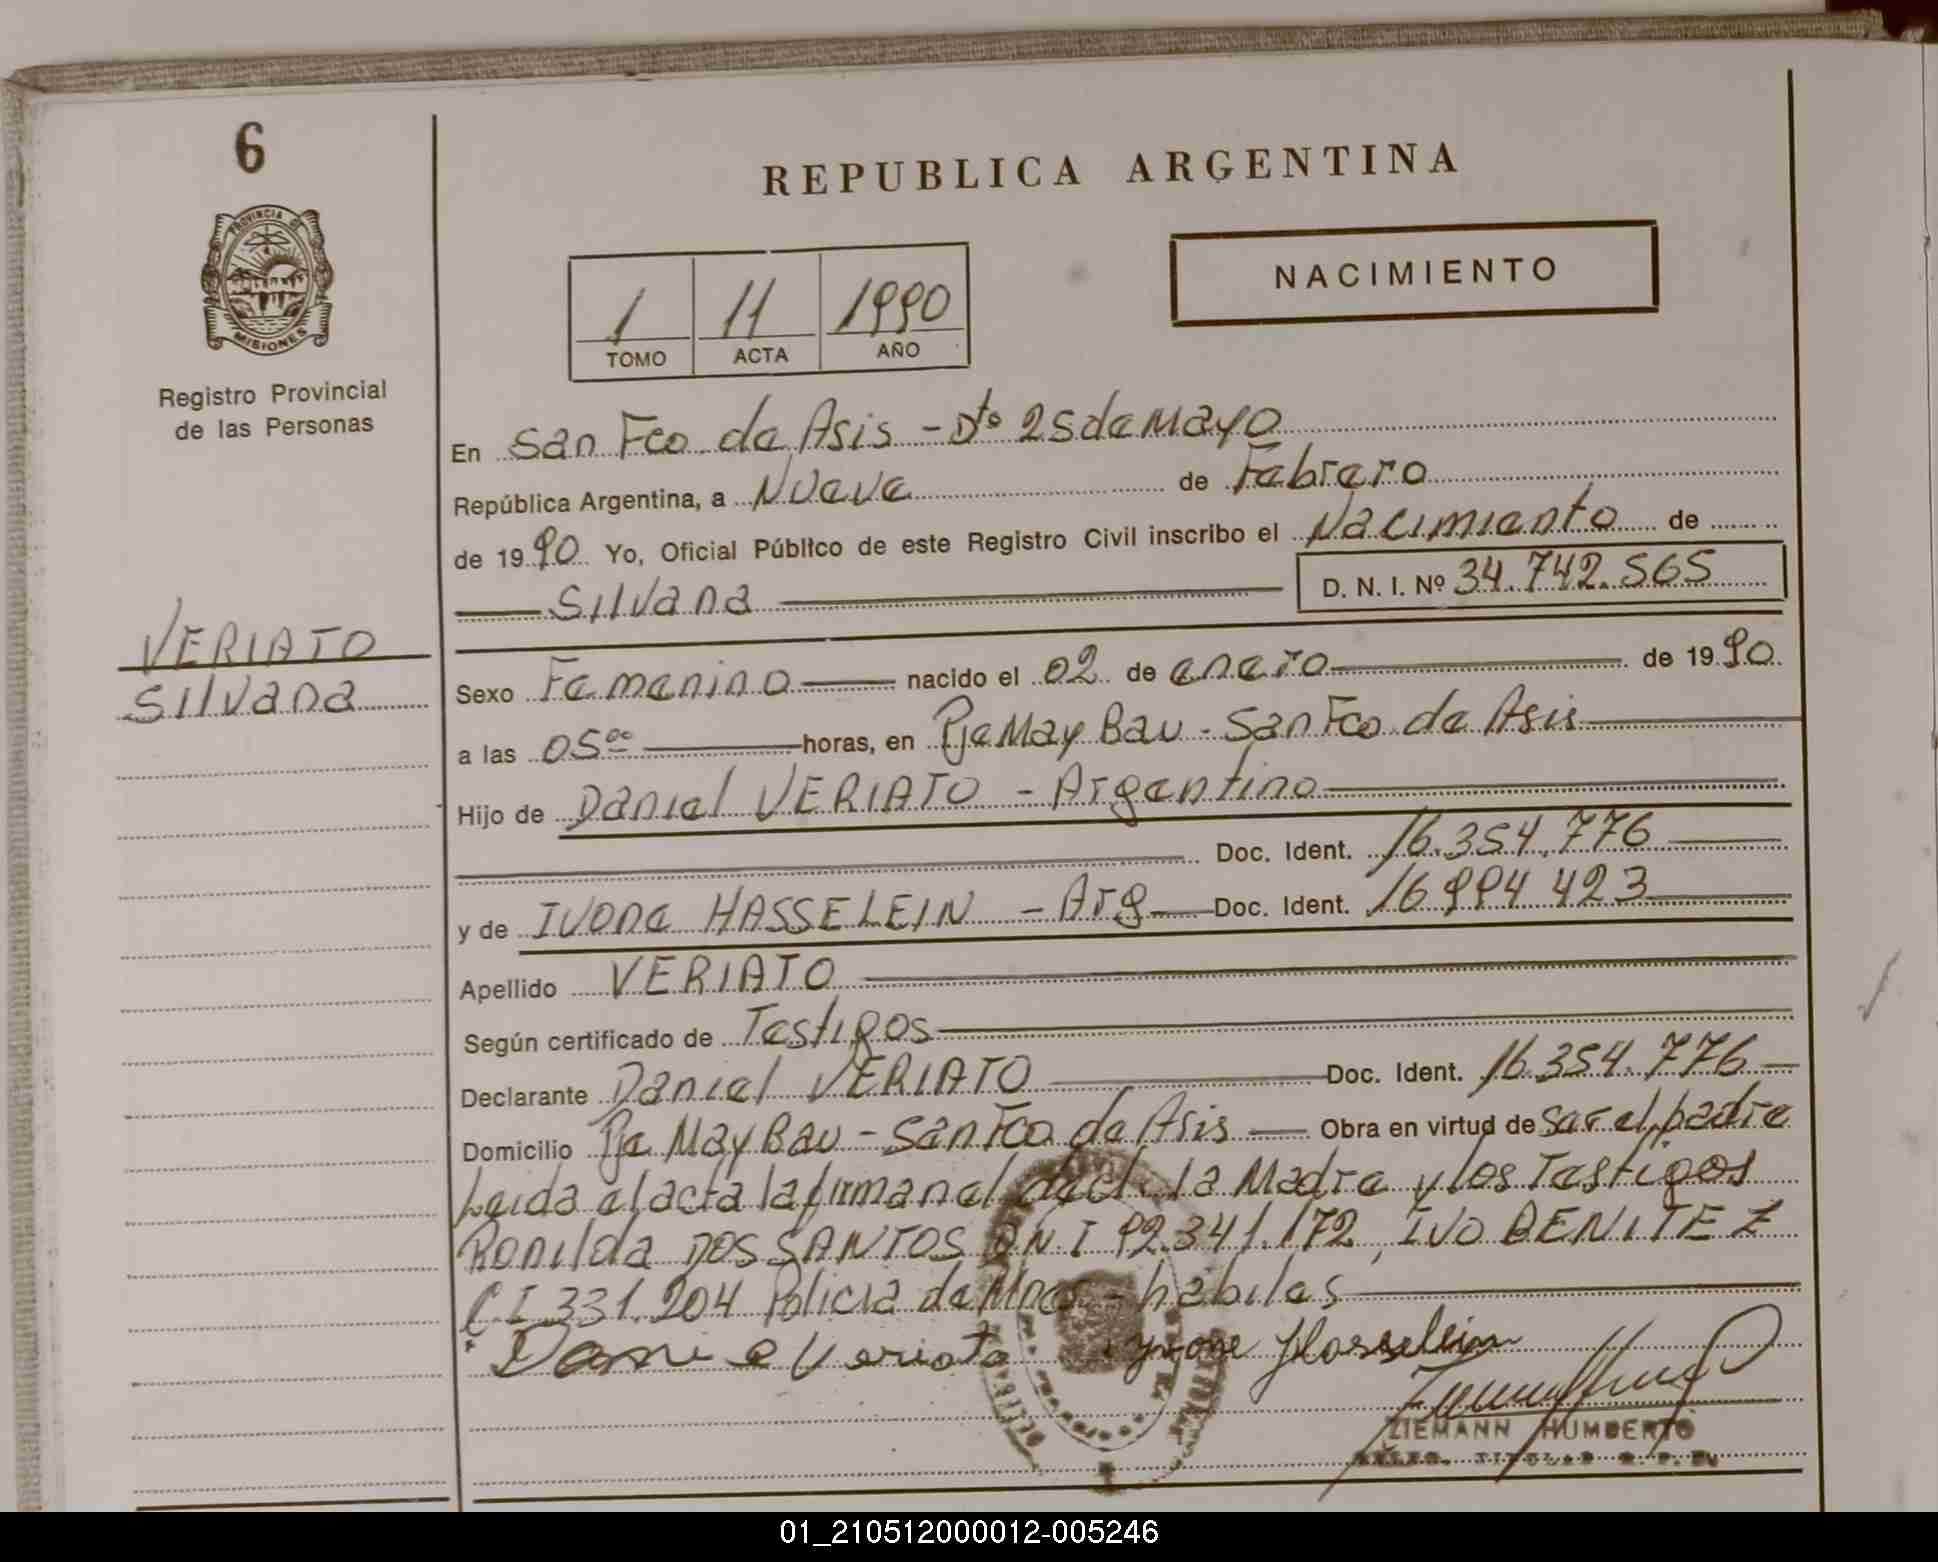 6
REPUBLICA ARGENTINA
PROVINCIA DE
MISIONES
Registro Provincial
de las Personas
1 11 1990
TOMO ACTA AÑO
NACIMIENTO
En San Fco. de Asis - Dto 25 de Mayo
República Argentina, a Nueve de Febrero
de 1990 Yo, Oficial Público de este Registro Civil inscribo el Nacimiento de
Silvana D. N. I. Nº 34.742.565
VERIATO
Silvana
Sexo Femenino nacido el 02 de enero de 1990
a las 05 00 horas, en Pje May Bau - San Fco de Asis
Hijo de Daniel VERIATO - Argentino
Doc. Ident. 16.354.776
y de IVone HASSELEIN - Arg Doc. Ident. 16 994 423
Apellido VERIATO
Según certificado de Testigos
Declarante Daniel VERIATO Doc. Ident. 16.354.776
Domicilio Pje May Bau - San Fco de Asis Obra en virtud de ser el padre
Leida el acta la firman el decl. la Madre y los Testigos
Ronilda DOS SANTOS DN.I 92.341.172, IVO BENITEZ
CI 331.204 Policia de Mnes - habiles
Ivone Hasselein
ZIEMANN HUMBERTO
01_210512000012-005246